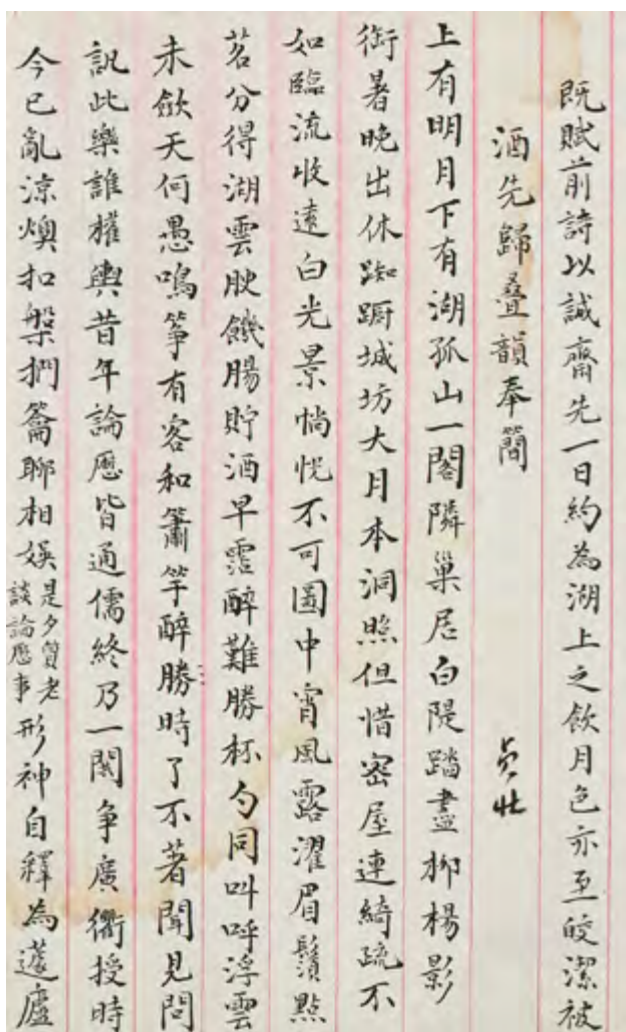 既賦前詩以誠齋先一日約為湖上之飲月色亦至皎潔被
酒先歸疊韻奉簡
貞壯
上有明月下有湖孤山一閣隣巢居白隄踏盡柳楊影
衙暑晚出休踟蹰城坊大月本洞照但惜密屋連綺疏不
如臨流收遠白光景惝怳不可圖中宵風露濯眉鬚點
茗分得湖雲腴饑腸貯酒早霑醉難勝杯勺同叫呼浮雲
未斂天何愚鳴箏有客和簫竽醉勝時了不著聞見問
訊此樂誰權輿昔年論曆皆通儒終乃一鬨爭廣衢授時
今已亂涼燠扣槃捫籥聊相娛是夕質老談論曆事形神自釋為蘧廬